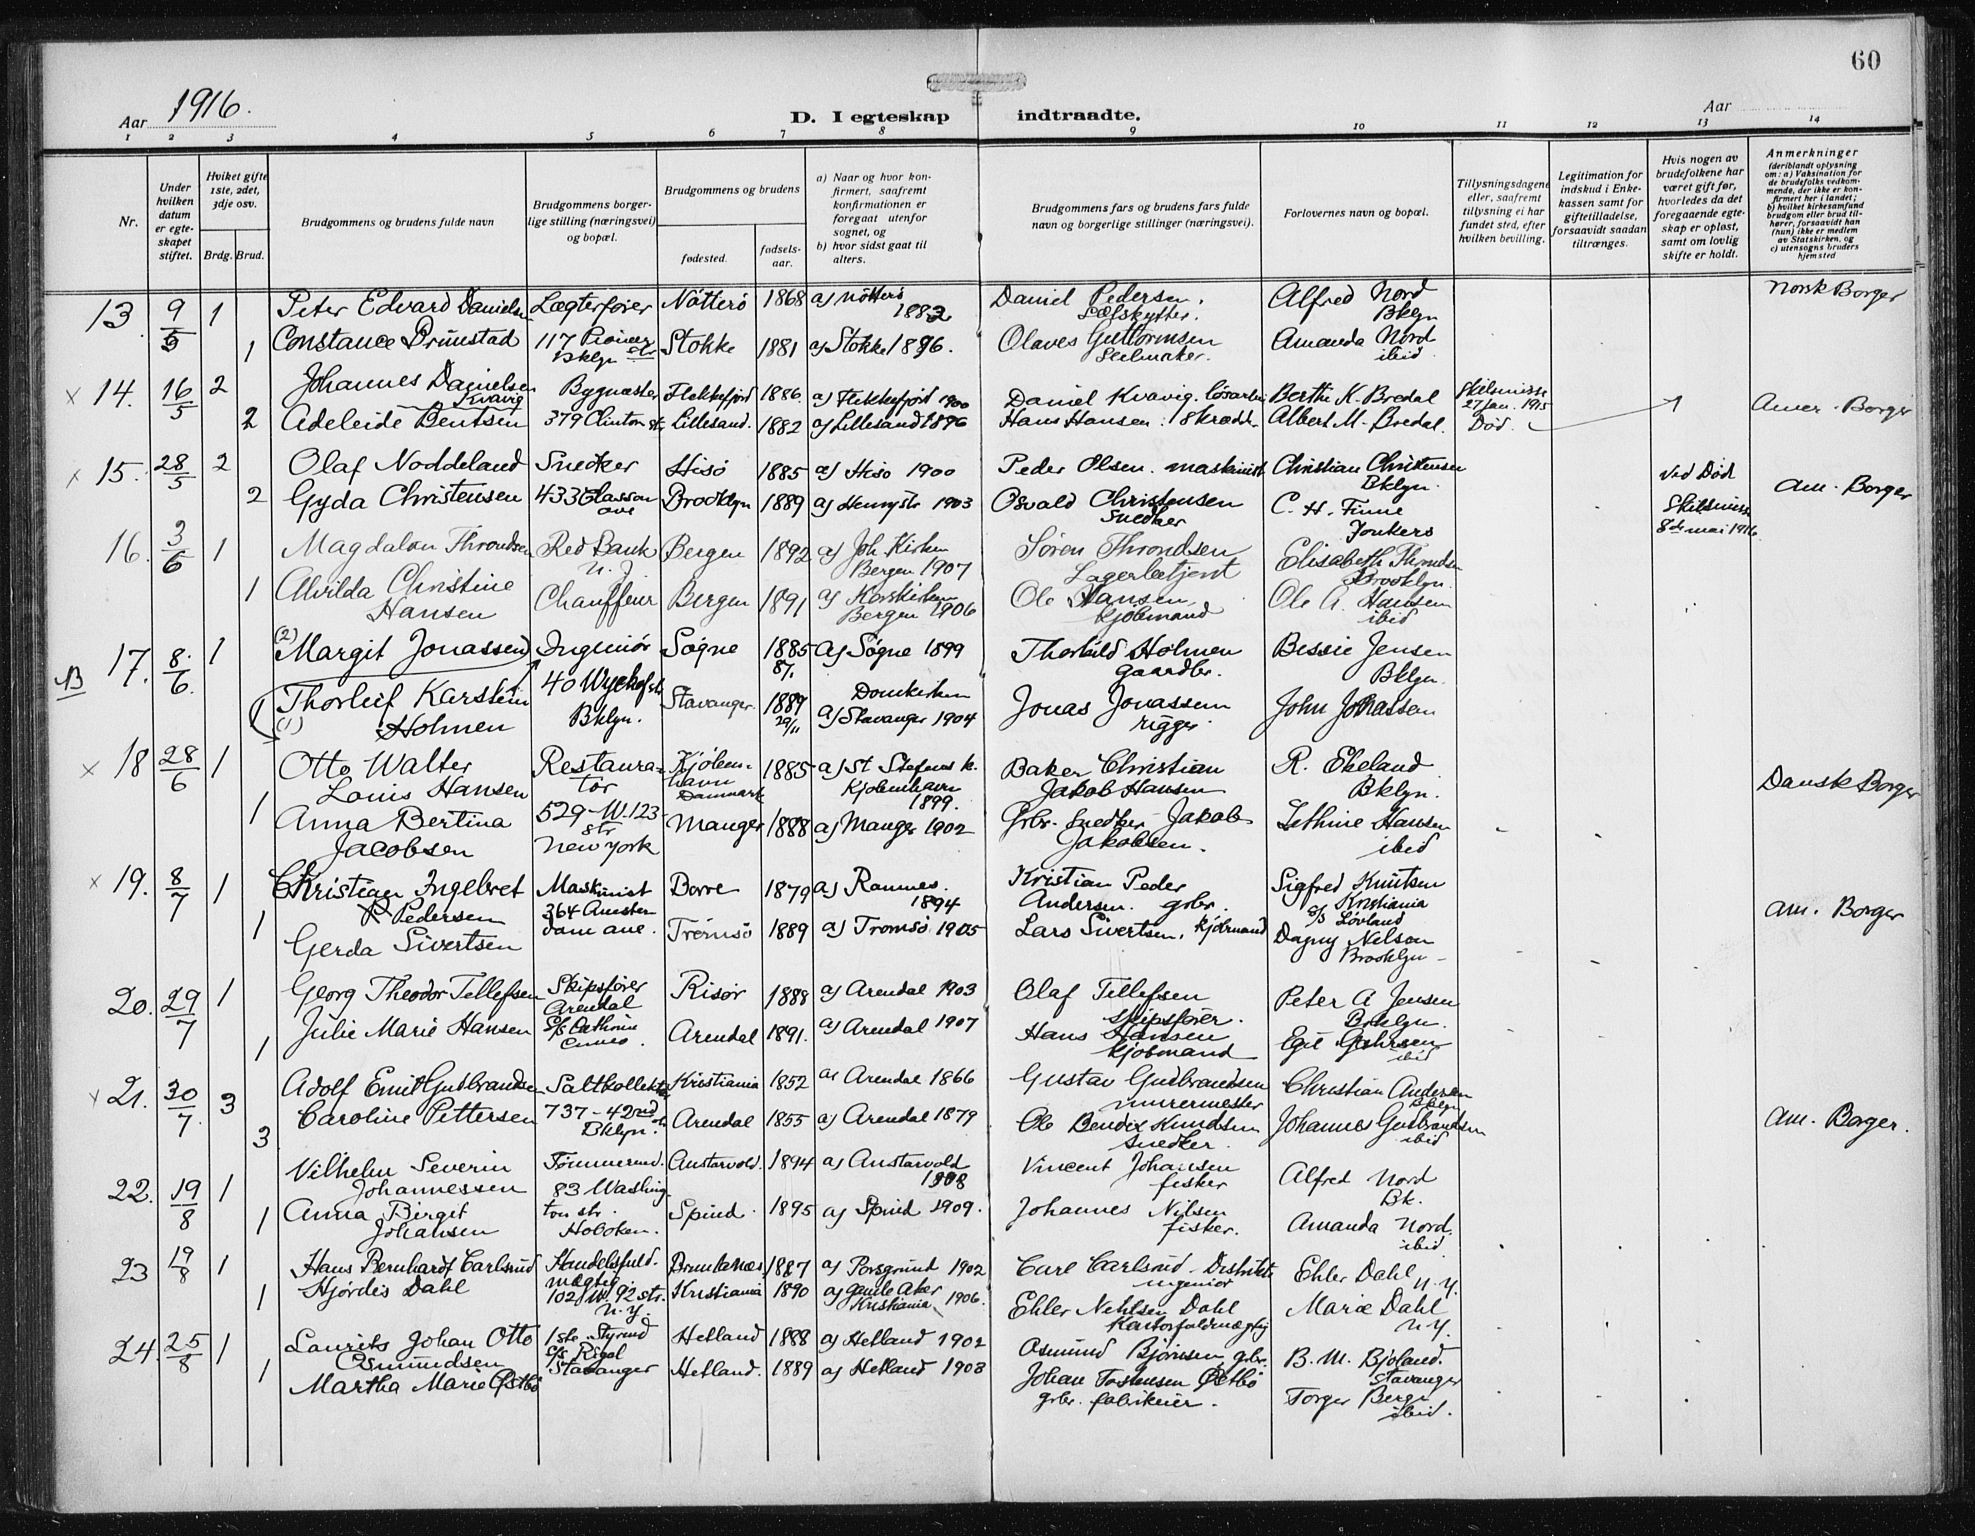 60
Aar 1916.
D. I egteskap indtraadte.
Aar
1 2 3 4 5 6 7 8 9 10 11 12 13 14
Nr.
Under hvilken datum er egteskapet stiftet.
Hviket gifte 1ste, 2det, 3dje osv.
Brdg. Brud.
Brudgommens og brudens fulde navn
Brudgommens borgerlige stilling (næringsvei) og bopæl.
Brudgommens og brudens
fødested.
fødselsaar.
a) Naar og hvor konfirmert, saafremt konfirmationen er foregaat utenfor sognet, og
b) hvor sidst gaat til alters.
Brudgommens fars og brudens fars fulde navn og borgerlige stillinger (næringsvei).
Forlovernes navn og bopæl.
Tillysningsdagene eller, saafremt tillysning ei har fundet sted, efter hvilken bevilling.
Legitimation for indskud i Enkekassen samt for giftetilladelse, forsaavidt saadan tiltrænges.
Hvis nogen av brudefolkene har været gift før, hvorledes da det foregaaende egteskap er opløst, samt om lovlig skifte er holdt.
Anmerkninger
(deriblandt oplysning om: a) Vaksination for de brudefolks vedkommende, der ikke er konfirmert her i landet; b) hvilket kirkesamfund brudgom eller brud tilhører, forsaavidt han (hun) ikke er medlem av Statskirken, og c) utensogns bruders hjemsted
13. 9/5 1 Peter Edvard Danielsen Lægterfører Nötterö 1868 a) Nötterö 1883 Daniel Pedersen. Alfred Nord Bklyn Norsk Borger
1 Constance Brunstad 117 Pioneer str Bklyn Stokke 1881 a) Stokke 1896. Olaves Guttormsen Seilmaker. Amanda Nord ibid
x 14. 16/5 2 Johannes Danielsen Kvavig Flekkefjord 1886. a) Flekkefjord 1900 Daniel Kvavig. Berthe K. Bredal Skilsmisse 27 Jan. 1915 Amer. Borger
2 Adeleide Bentsen 379 Clinton st. Lillesand. 1882 a) Lillesand 1896 Hans Hansen Albert M. Bredal. Död.
x 15. 28/5 2 Olaf Noddeland Snedker Hisö 1885 a) Hisö 1900 Peder Olsen. maskinist Christian Christensen Bklyn. Ved Död Am. Borger
2 Gyda Christensen 433 Classon ave Brooklyn 1889 a) Henrystr 1903 Osvald Christensen Snedker C. H. Finne Yonkers Skilsmisse 8de mai 1916
16. 3/6 1 Magdalon Throndsen Red Bank N. J. Bergen 1892 a) Joh. Kirken Bergen 1907 Sören Throndsen Lagerbetjent Elisabeth Throndsen Brooklyn.
1 Alvilda Christine Hansen Chauffeur Bergen 1891 a) Korskirken Bergen 1906 Ole Hansen Kjöbmand Ole A. Hansen ibid
B 17. 8/6. 1 (2) Margit Jonassen Ingeniör Søgne 1885 8/. a) Søgne 1899 Thorkild Holmen gaardbr. Bessie Jensen Bklyn.
1 Thorleif Karstein (1) Holmen 40 Wyckof st. Bklyn. Stavanger. 1889 29/11 Domkirken a) Stavanger 1904 Jonas Jonassen rigger John Jonassen
x 18 28/6 1 Otto Walter Louis Hansen Restauratör Kjöbenhavn Danmark 1885 a) St Stefens k. Kjöbenhavn 1899. Baker Christian Jakob Hansen R. Ekeland Bklyn. Dansk Borger
1 Anna Bertina Jacobsen 529 - W. 123 - str New York Manger 1888 a) Manger 1902 Grbr. Snedker Jakob Jakobsen. Hansen ibid
x 19. 8/7 1 Christian Ingebret R Pedersen Maskinist Borre 1879 a) Ramnes. 1894 Kristian Peder Andersen. grbr. Sigfred Knutsen Kristiania s/s Lövland Am. Borger
1 Gerda Sivertsen 364 Amsterdam ave. Tromsö 1889 a) Tromsö 1905 Lars Sivertsen, kjöbmand Dagny Nelson Brooklyn
20. 29/7 1 Georg Theodor Tellefsen Skipsfører Arendal Risör 1888 a) Arendal 1903 Olaf Tellefsen skipsfører. Peter A Jensen Bklyn.
1 Julie Marie Hansen Arendal 1891. a) Arendal 1907 Hans Hansen Kjöbmand Egil ibid
x 21. 30/7. 3 Adolf Emil Gudbrandsen Kristiania 1852 a) Arendal 1866 Gustav Gudbrandsen murermester Christian Andersen Bklyn
3 Caroline Pettersen 737 - 42nd st. Bklyn. Arendal 1855 a) Arendal 1879 Ole Bendix Knudsen Snedker. Johannes Gudbrandsen ibid Am. Borger.
22. 19/8 1 Vilhelm Severin Johannessen Tømmermd. Austervold. 1894 a) Austervold 1908 Vincent Johansen fisker Alfred Nord Bk.
1 Anna Birgit Johansen 83 Washington str. Hoboken. Spind. 1895 a) Spind 1909. Johannes Nilsen fisker. Amanda Nord. ibid
23 19/8 1 Hans Bernhardt Carlsrud Handelsfuldmægtig 1887 a) Porsgrund 1902 Carl Carlsrud - Distrikts ingeniør Ehler Dahl N. Y.
1 Hjördis Dahl 102 W. 92 str. N. Y. Kristiania 1890 a) gamle Aker Kristiania 1906. Ehler Nehlsen Dahl Kontorfuldmægtig Marie Dahl N. Y.
24. 25/8 1 Laurits Johan Otto Osmundsen 1ste Styrmd s/s Rigol Stavanger Hetland 1888 a) Hetland 1902 Osmund Björnsen, grbr. B. M. Bjoland. Stavanger
1 Martha Marie Østbö Hetland. 1889 a) Hetland 1903 Johan Østbö grbr. fabrikeier. Torger Berge ibid.